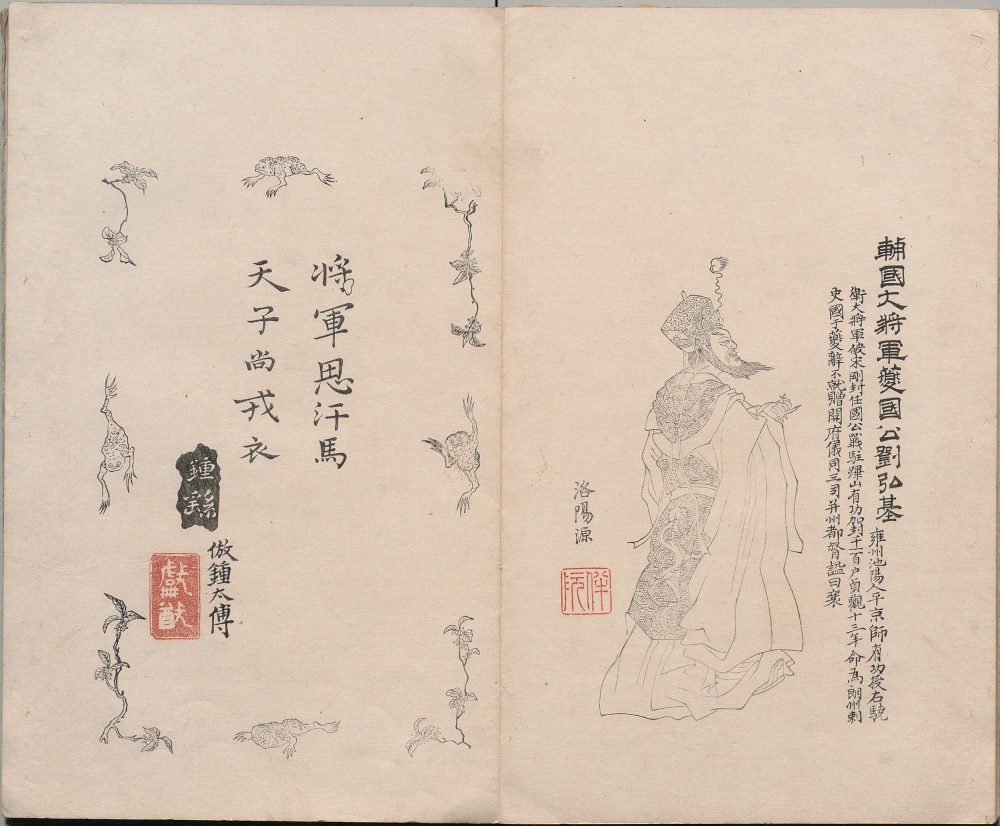 輔國大將軍夔國公劉弘基 雍州池陽人平京師有功授右驍
衛大將軍破宋剛封任國公戰駐蹕山有功加封千一百户貞觀十三年命為朗州刺
史國于夔辭不就贈開府儀同三司并州都督謚曰襄
洛陽源
伴阮
將軍思汗馬
天子尚戎衣
鍾繇
倣鍾太傅